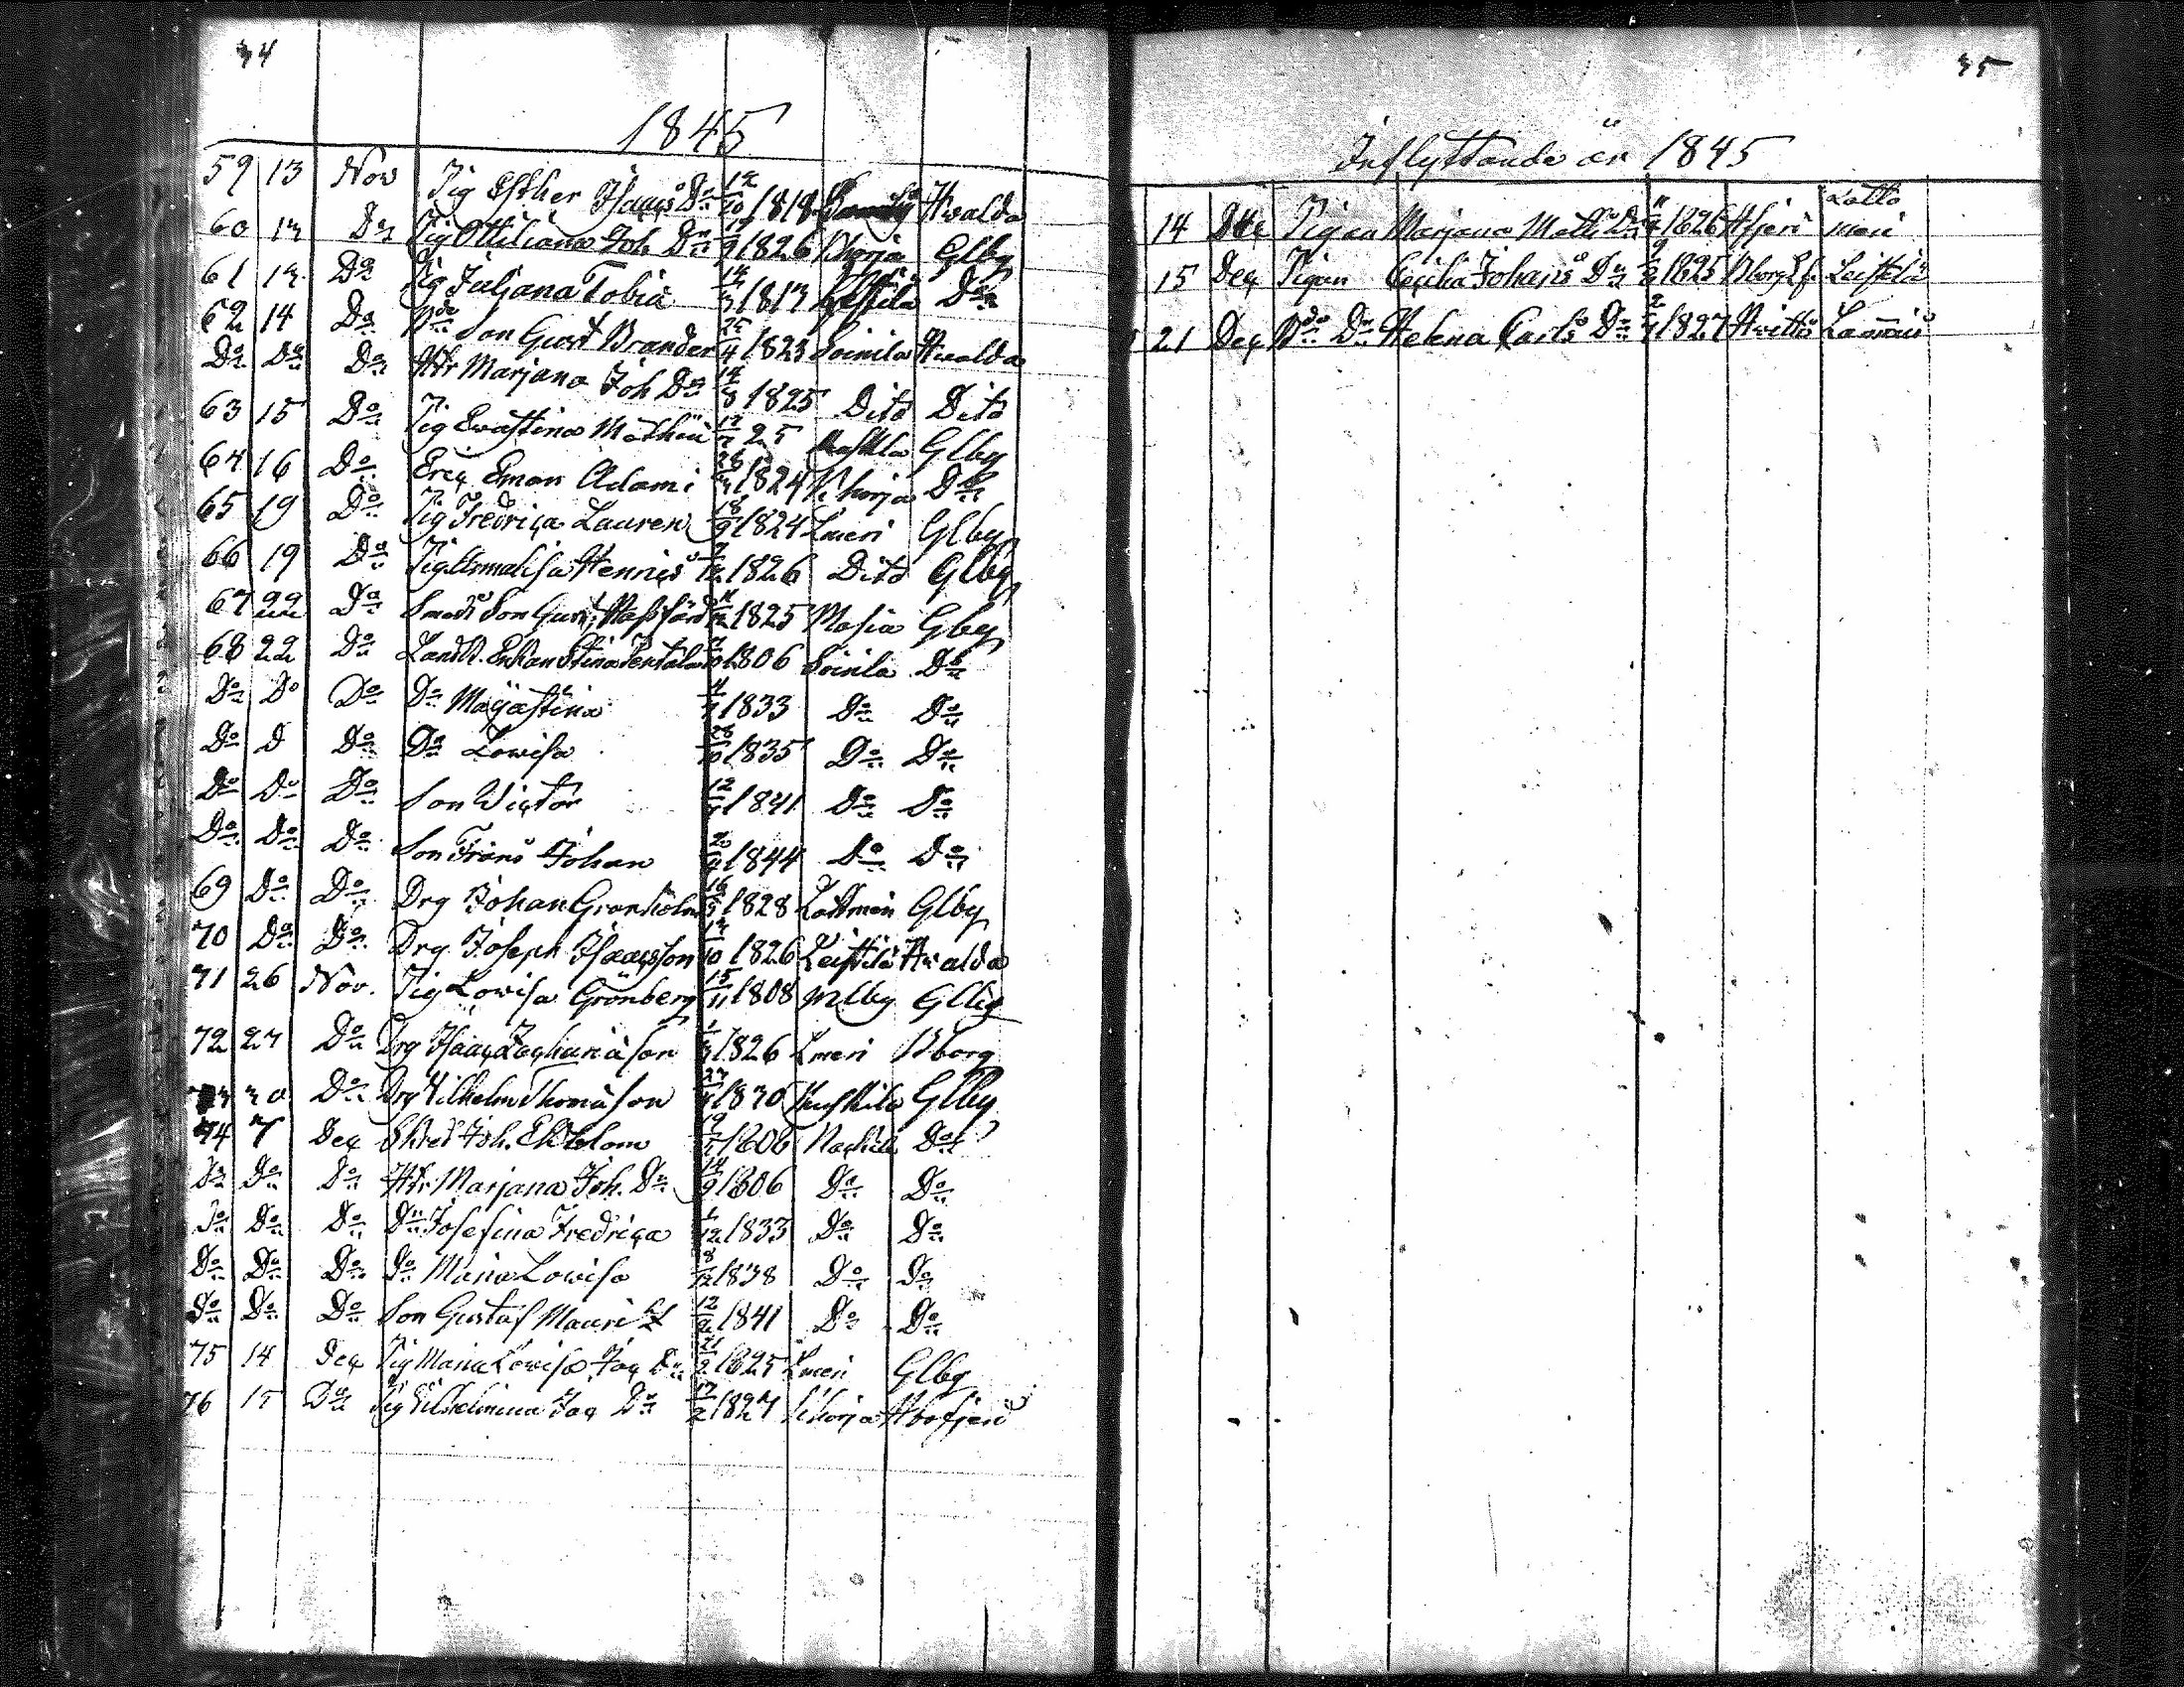 34
1845
59 13 Nov Pig Esther Isaacs Dr 12/10 1818 Hvalda
60 13 Do Pig Ottiliana Joh Dr 19/9 1826 Khorja Glby
61 13 Do Pig Juljana Tobia 13/3 1813 Do
62 14 Do Bde Son Gust Brander 25/4 1823 Soinila Hvalda
Do Do Do Hu Marjana Joh Dr 14/8 1825 Dito Dito
63 15 Do Pig Evastina Mathiæ 25 Glby
64 16 Do Eric Eman Adami 1824 Khorja Do
65 19 Do Pig Fredrica Lauren 18/9 1824 Lmeri Glby
66 19 Do Pig Annalisa Henrics 7/12 1826 Dito Glby
67 22 Do Smeds Son Gust 1825 Masia Gby
68 22 Do Enkan Stina 1806 Soinila Do
Do Do Do Dr Majastina 4/7 1833 Do Do
Do D Do Dr Lovisa 26/10 1835 Do Do
Do Do Do Son Victor 12/7 1841 Do Do
Do Do Do Son Frans Johan 1844 Do Do
69 Do Do Drg Johan Grönholm 16/5 1828 Lattmeri Glby
70 Do Do Drg Joseph Isaacsson 13/10 1826 Leistilä Hvalda
71 26 Nov. Pig Lovisa Grönberg 15/11 1808 Mlby Glby
72 27 Do Drg Isaac Zachariason 1/3 1826 Lmeri Bborg
73 30 Do Drg Vilhelm Thomason 1830 Glby
74 7 Dec Skred Joh. Ekblom 19/7 1806 Do
Do Do Do Hu Marjana Joh. Dr 14/9 1806 Do Do
Do Do Do Dr Josefina Fredrica 1/12 1833 Do Do
Do Do Do Do Maria Lovisa 8/12 1838 Do Do
Do Do Do Son Gustaf Mauritz 12/9 1841 Do Do
75 14 Dec Pig Maria Lovisa Jac Dr 21/2 1825 Lmeri Glby
76 15 Do Pig Vilhelmina Jac Dr 17/2 1827 Khorja Hbofjerd
35
Inflyttande år 1845
14 Dec Pigan Marjana Matts Dr 1826 Hfjerd Lattomeri
15 Dec Pigan Cecilia Johans Dr 9/3 1825 Bborg Lf. Leistilä
21 Dec Bde Dr Helena Carls Dr 2/7 1827 Hvittis Lammais